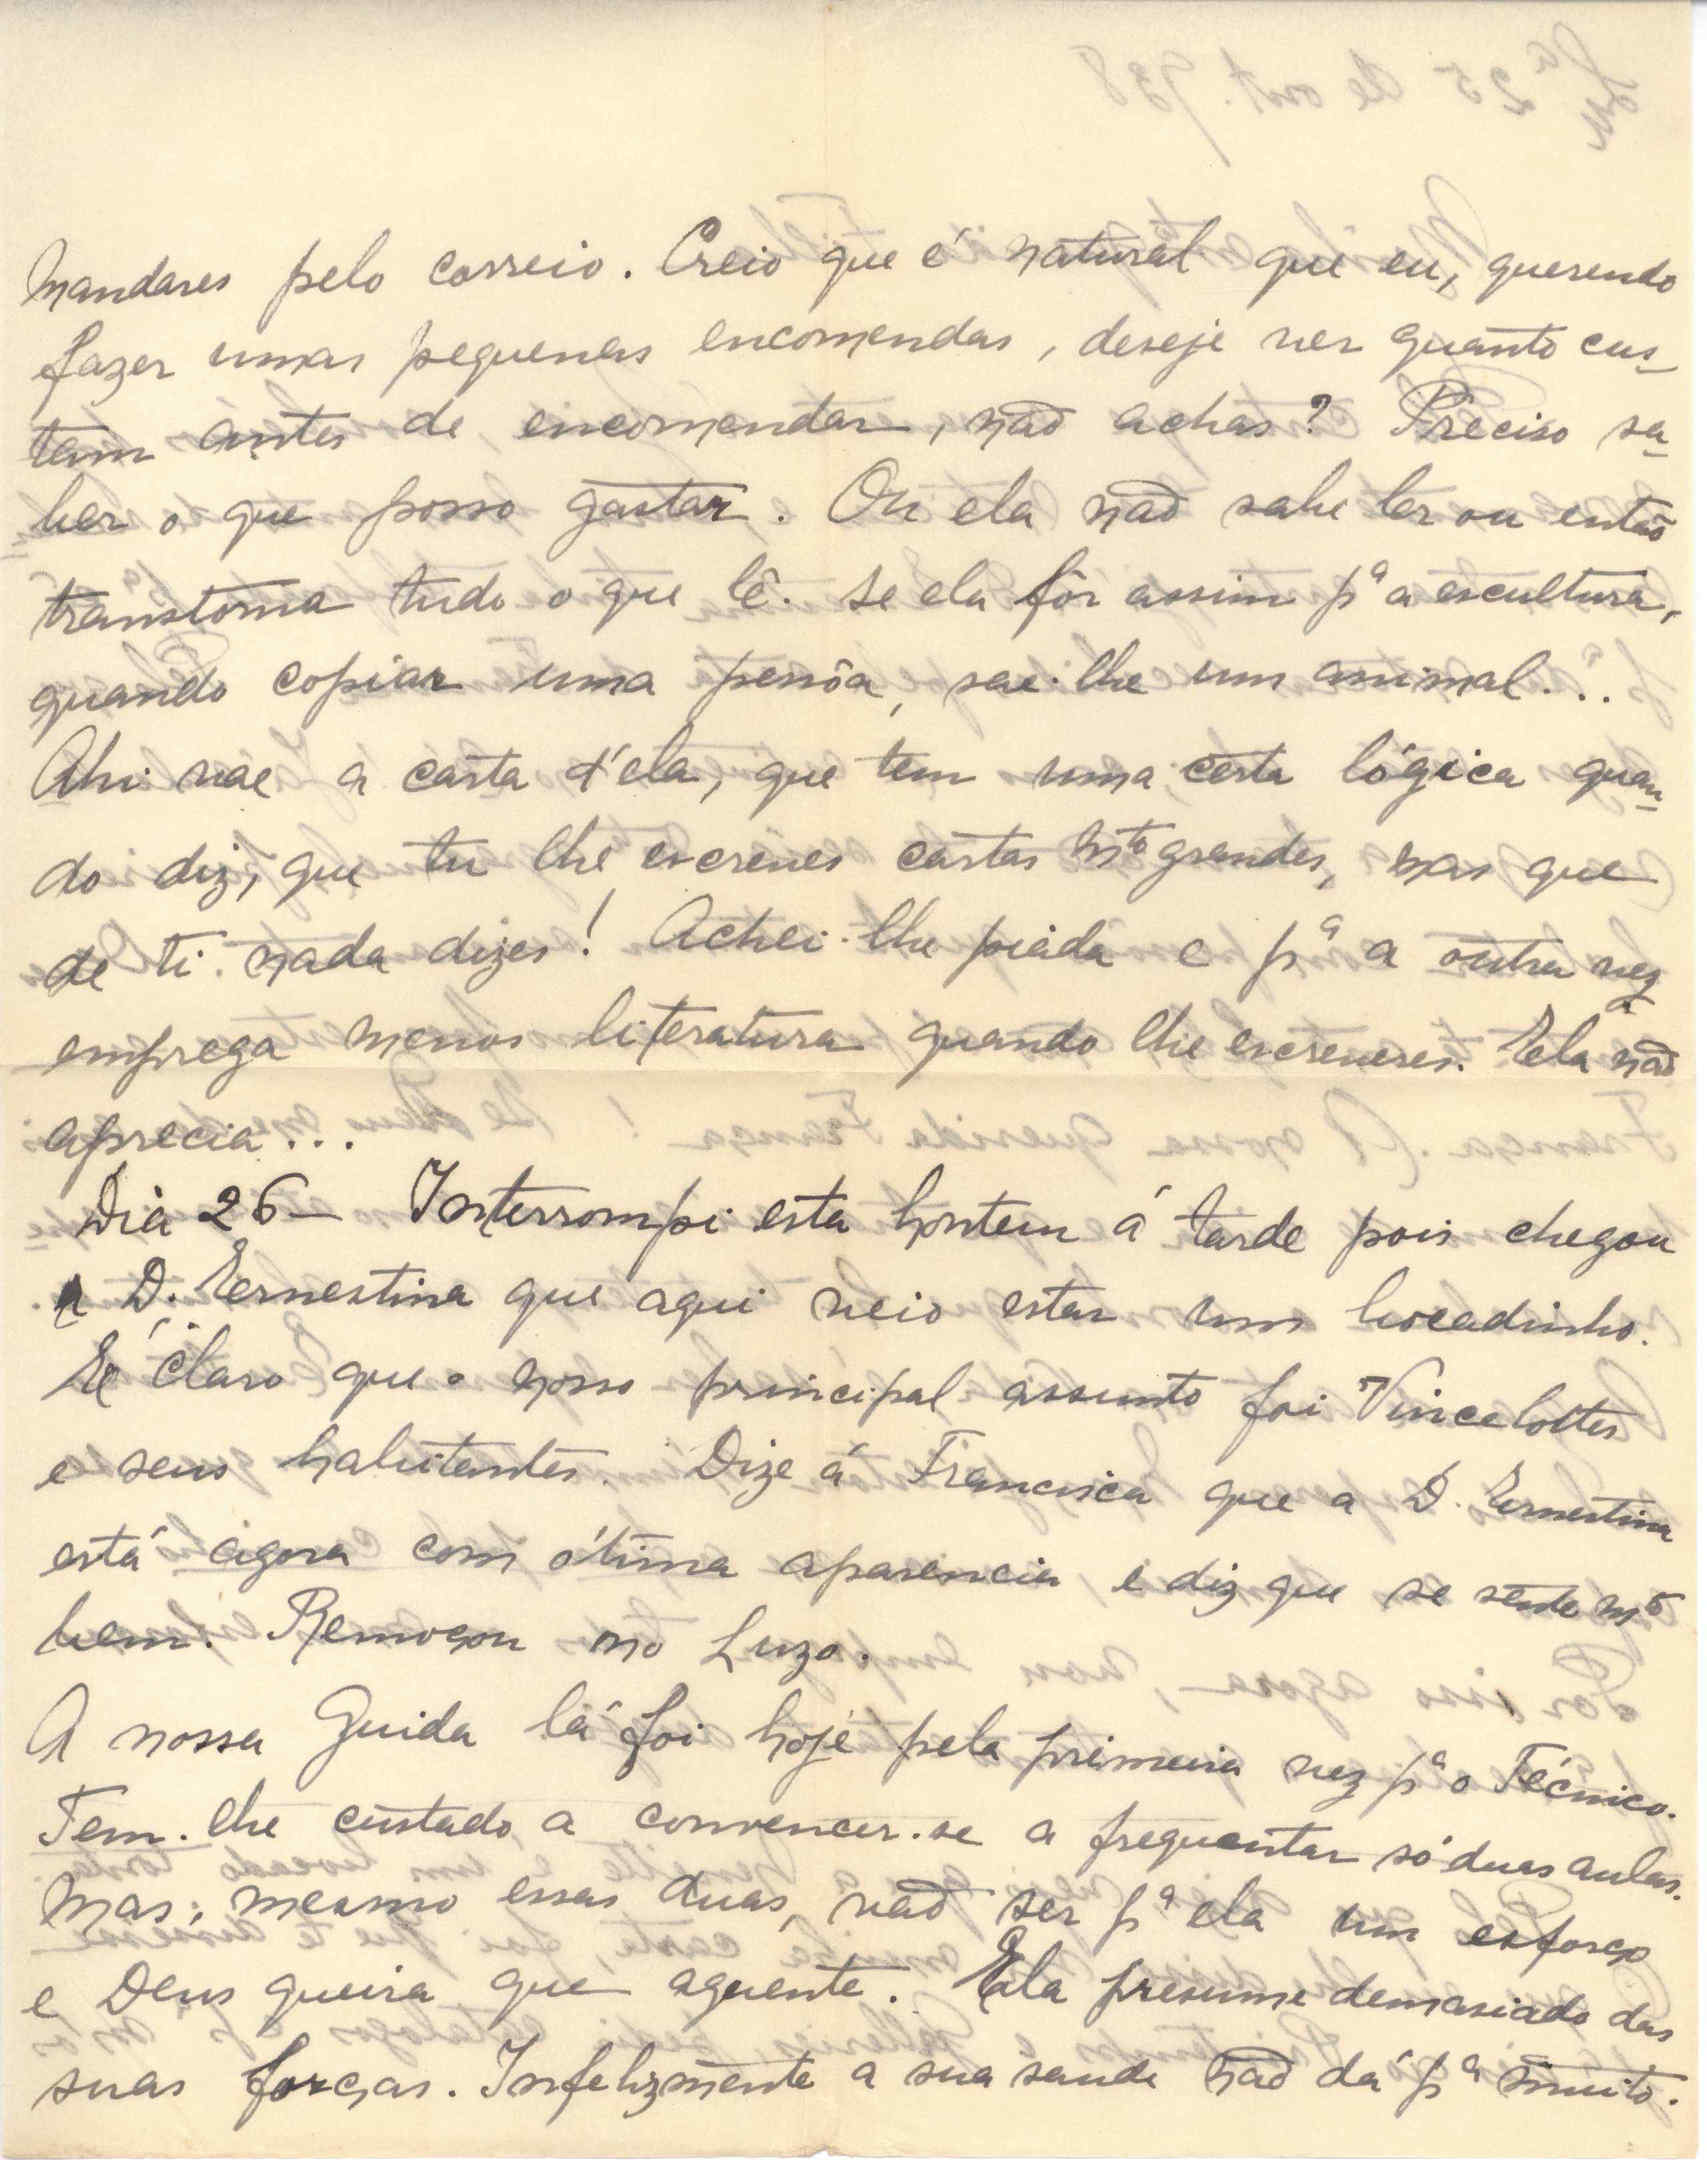 mandares pelo correio. Creio que é natural que eu, querendo
fazer umas pequenas encomendas, deseje ver quanto cus-
tam ántes de encomendar, não achas? Preciso sa-
ber o que posso gastar. Ou ela não sabe ler ou então
transtorna tudo o que lê. Se ela fôr assim pª a escultura,
quando copiar uma pessôa, sae-lhe um animal...
Ahi vae a carta d'ela, que tem uma certa lógica quan-
do diz, que tu lhe escreves cartas mto grandes, mas que
de ti nada dizes! Achei-lhe piada e pª a outra vez
emprega menos literatura quando lhe escreveres. Ela não
aprecia...
Dia 26 - Interrompi esta hontem á tarde pois chegou
a D. Ernestina que aqui veio estar um bocadinho.
É claro que o nosso principal assunto foi Vincelottes
e seus habitantes. Dize á Francisca que a D. Ernestina
está agora com ótima aparencia e diz que se sente mto
bem. Remoçou no Luzo.
A nossa Guida lá foi hoje pela primeira vez pª o Técnico.
Tem-lhe custado a convencer-se a frequentar só duas aulas.
Mas, mesmo essas duas, vão ser pª ela um esforço
e Deus queira que aguente. Ela presume demasiado das
suas forças. Infelizmente a sua saude não dá pª muito.